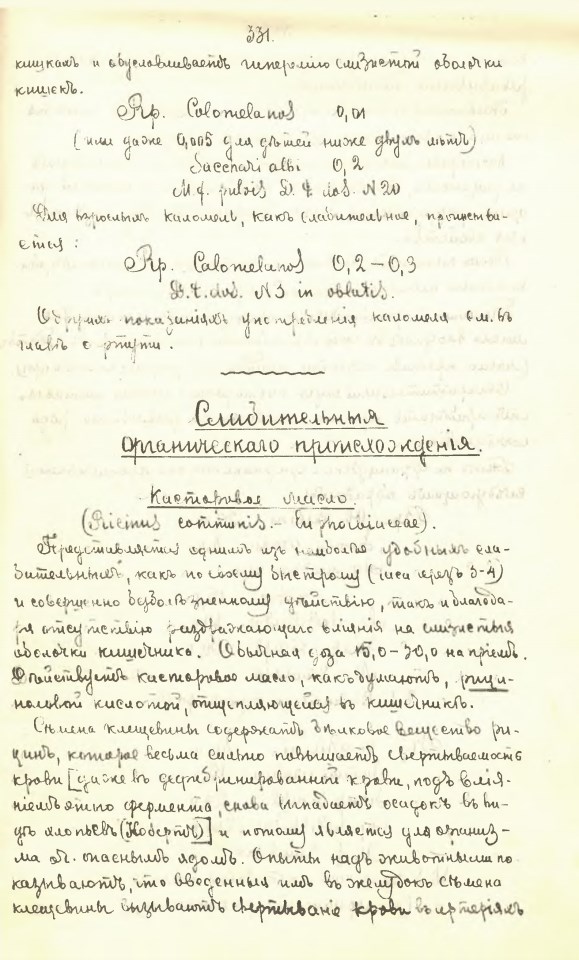 331.
кишкамъ и обусловливаетъ гиперемію слизистой оболочки
кишекъ.
Rp. Calomelanos 0,01
(или даже 0,005 для дѣтей ниже двухъ лѣтъ)
Sacchari albi 0,2
M.f. pulvis D.t. dos. N 20
Для взрослыхъ каломель, какъ слабительное, прописыва-
ется:
Rp. Calomelanos 0,2 – 0,3
D.t. dos. N 3 in oblatis.
О другихъ показаніяхъ употребленія каломеля см. въ
главѣ о ртути.
Слабительныя
органическаго происхожденія.
Касторовое масло.
(Ricinus communis – Euphorbiaceae).
Представляется однимъ изъ наиболѣе удобныхъ сла-
бительныхъ, какъ по своему быстрому (часа черезъ 3-4)
и совершенно безболѣзненному дѣйствію, такъ и благода-
ря отсутствію раздражающаго вліянія на слизистыя
оболочки кишечника. Обычная доза 15,0 – 30,0 на пріемъ.
Дѣйствуетъ касторовое масло, какъ думаютъ, рици-
ноловой кислотой, отщепляющейся въ кишечникѣ.
Сѣмена клещевины содержатъ бѣлковое вещество ри-
цинъ, которое весьма сильно повышаетъ свертываемость
крови [даже въ дефибринированной крови, подъ влія-
ніемъ этого фермента, снова выпадаетъ осадокъ въ ви-
дѣ хлопьевъ (Кобертъ)] и потому является для организ-
ма оч. опаснымъ ядомъ. Опыты надъ животными по
казываютъ, что введенныя имъ въ желудокъ сѣмена
клещевины вызываютъ свертываніе крови въ артеріяхъ